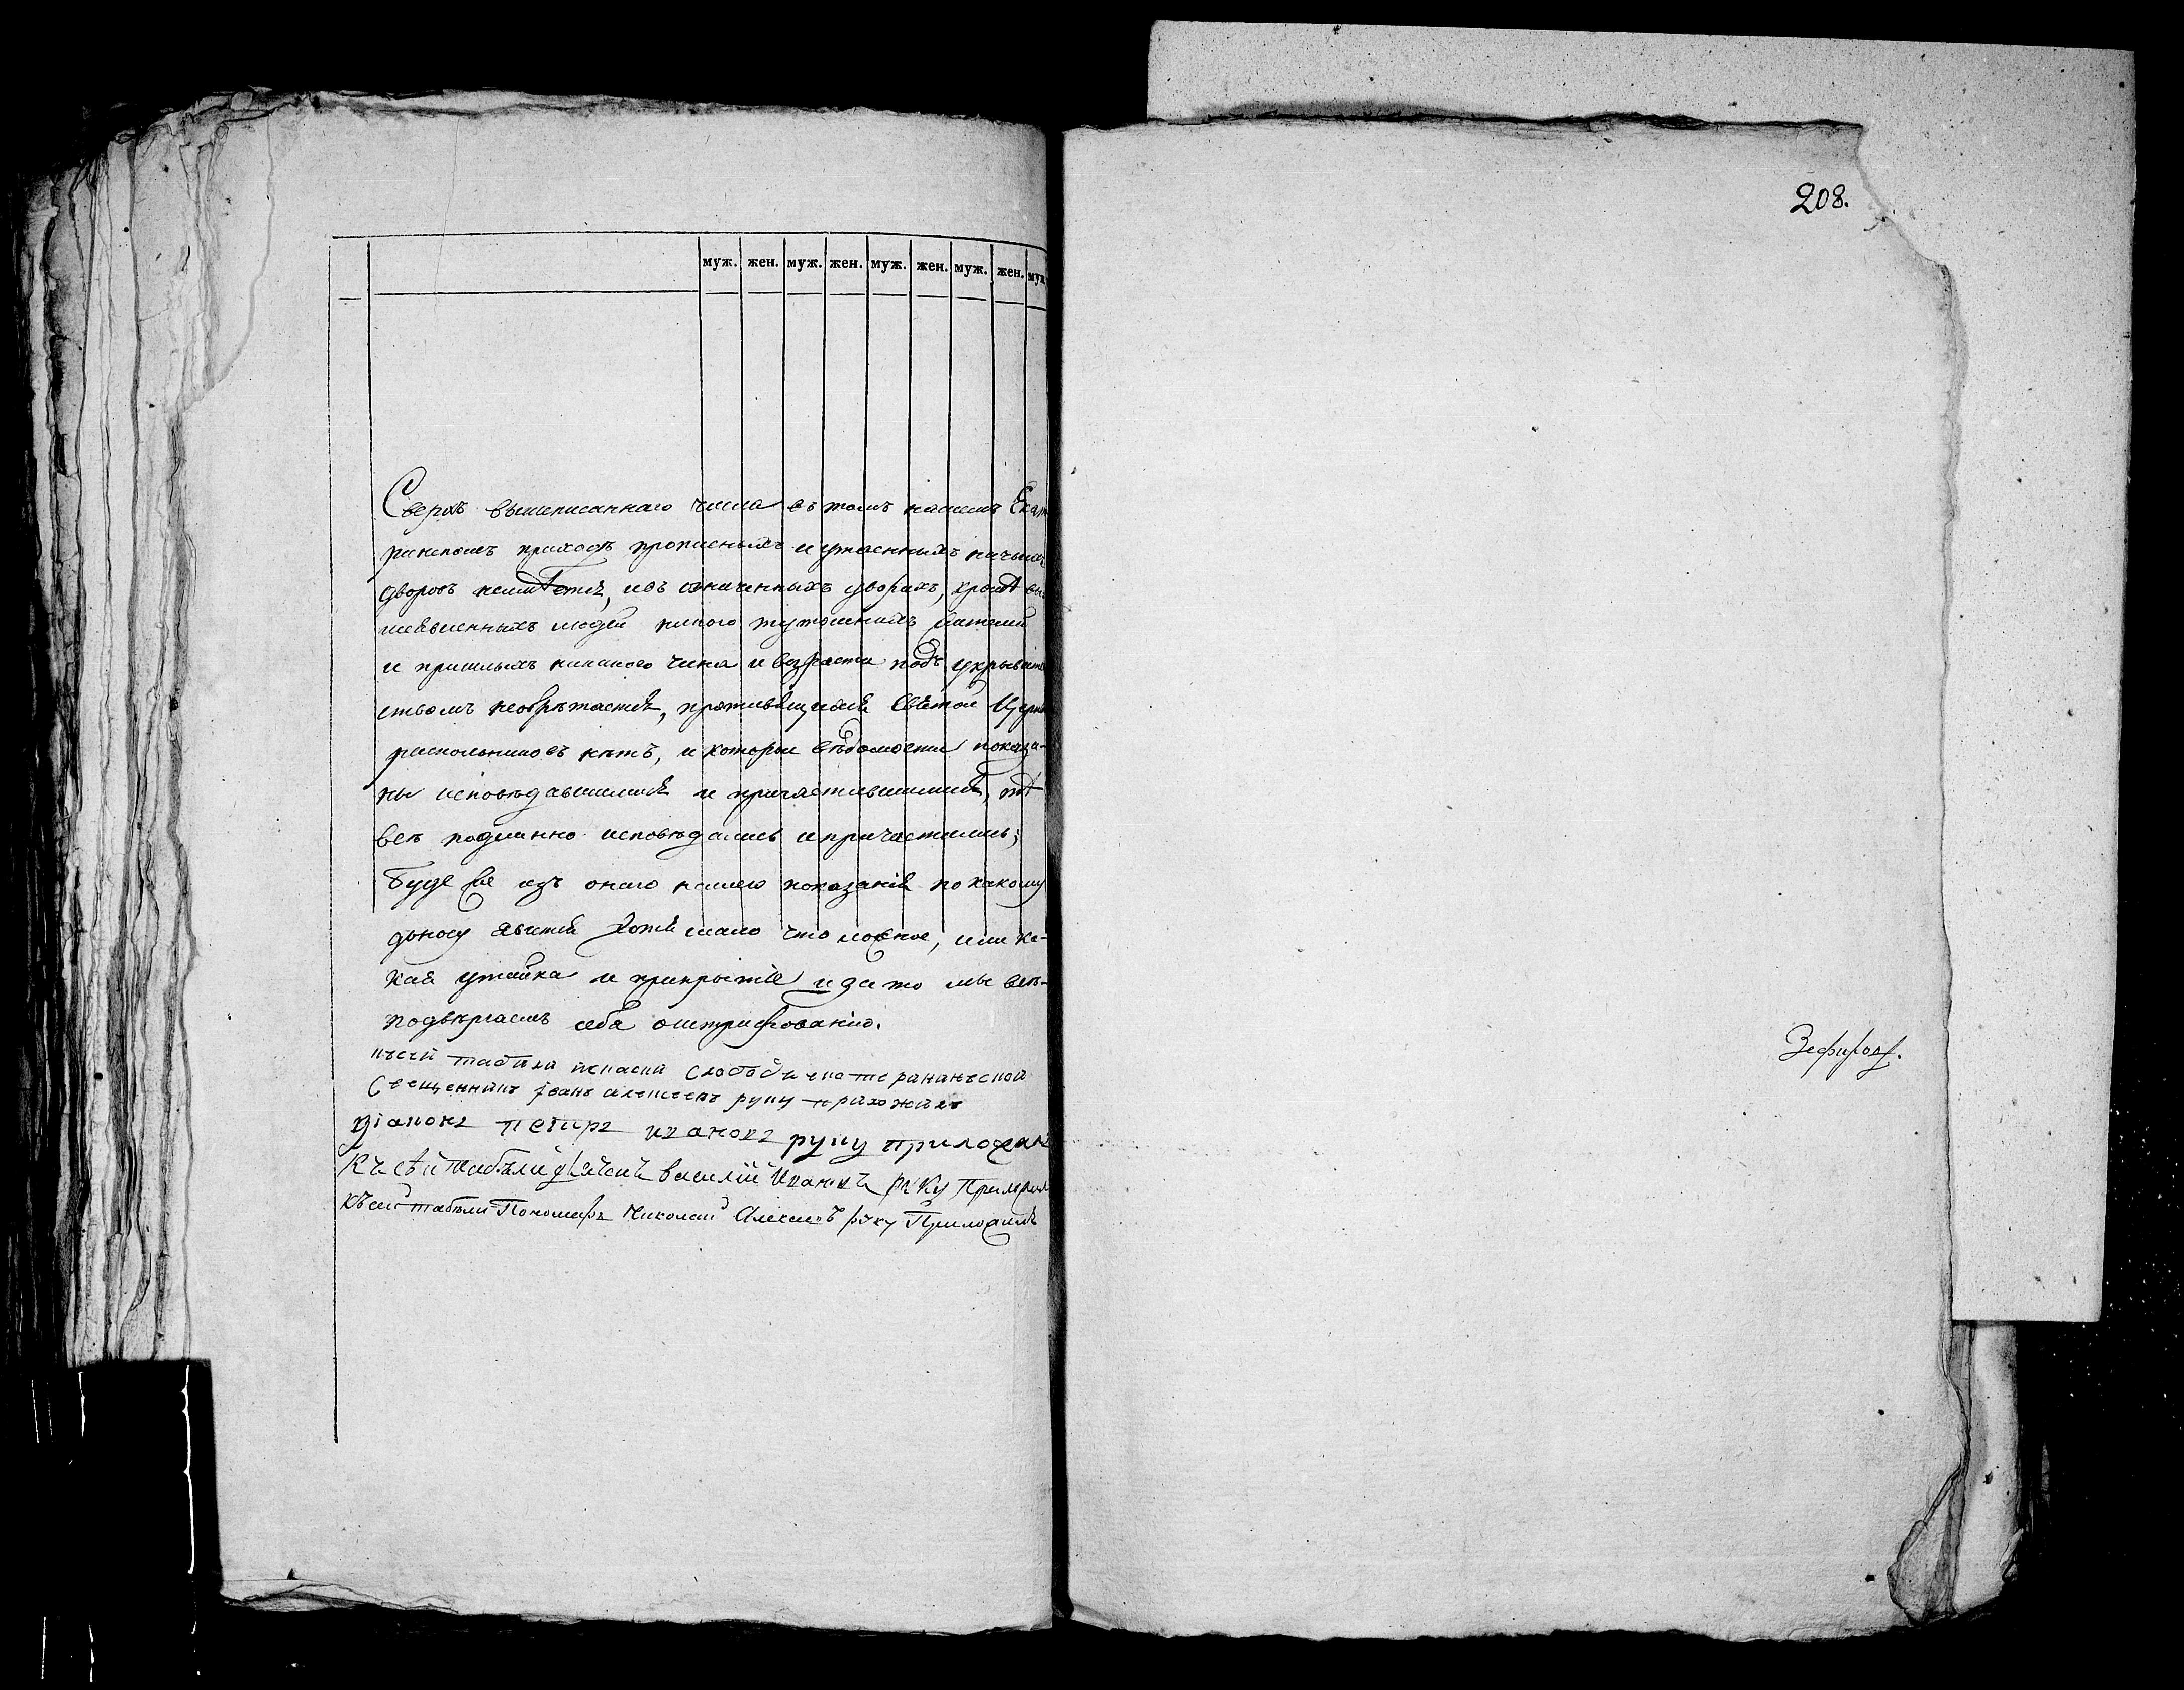 муж. жен. муж. жен. муж. жен. муж. жен. муж.
Сверхъ вышеписаннаго числа въ томъ нашемъ Екате
ринскомъ приходѣ прописныхъ и утаенныхъ
дворовъ неимѣется, ивъ означенныхъ дворахъ, кромѣ вы
шеявленныхъ людей никого тутошнихъ жителей
и пришлыхъ никакого чина и возраста подъ укрыватель
ствомъ необрѣтается, противящихся Святой Церкви
раскольниковъ нѣтъ, и которые вѣдомости показа-
ны исповѣдавшимися и причастившимися, тѣ
всѣ подлинно исповѣдались ипричастились;
Буде же изъ онаго нашего показанія по какому
доносу явится хотя мало что ложное, или ка-
кая утайка и прикрытіе и зато мы всѣ-
подвѣргаемъ себя оштрафованію.
късей табели слободы екатерининской
Священникъ Іванъ алексеевъ руку приложилъ
діаконъ петиръ ивановъ руку приложилъ
Къ сѣй табѣли дьячокъ василій Ивановъ руку Приложилъ
Къ сей табели Пономарь Николай Алексеевъ руку Приложилъ
208.
Зефировъ.